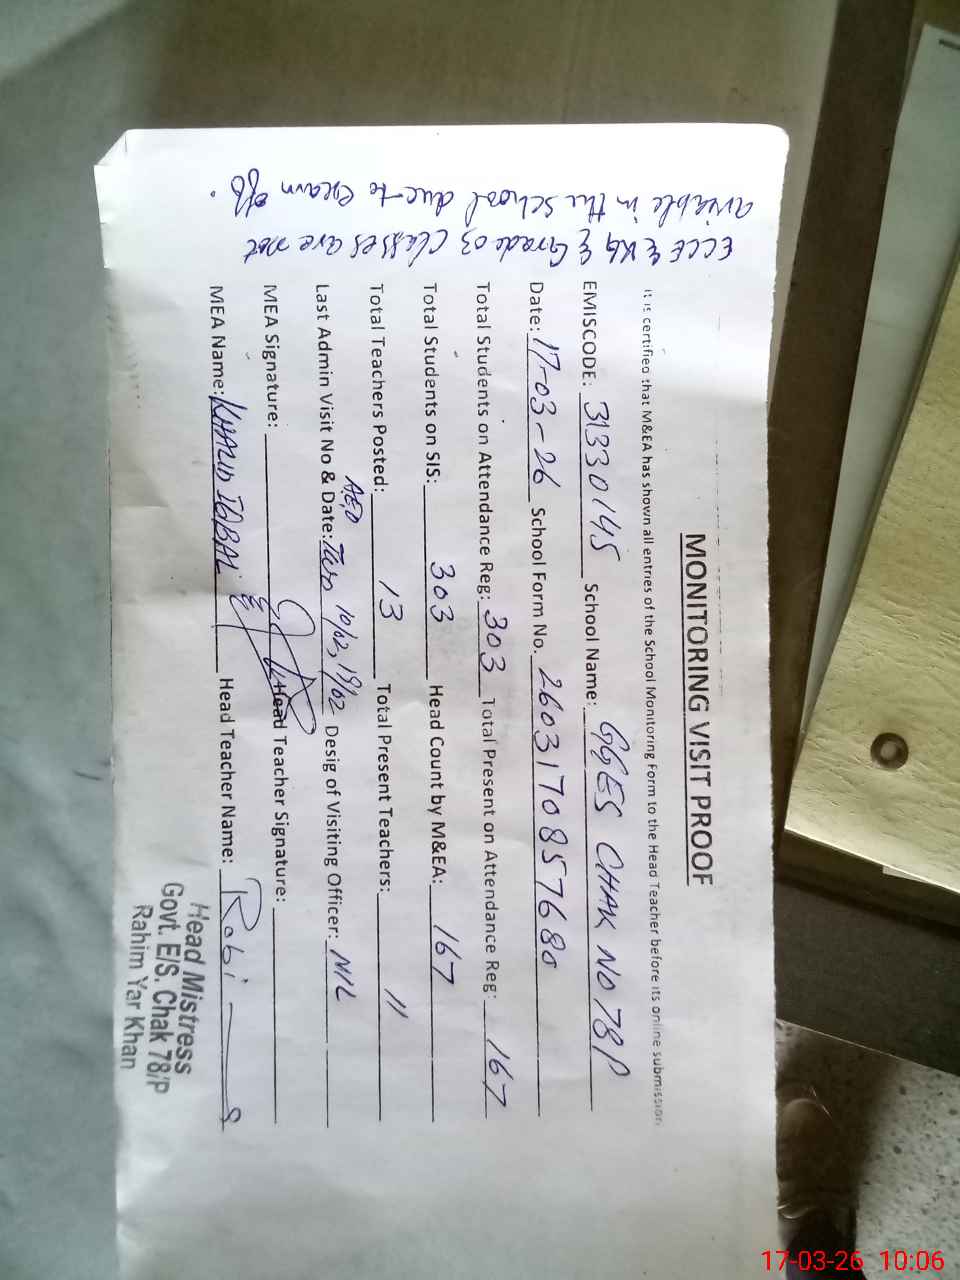 MONITORING VISIT PROOF
It is certified that M&EA has shown all entries of the School Monitoring Form to the Head Teacher before its online submission
EMISCODE: 31330145 School Name: GGES CHAK NO 78P
Date: 17-03-26 School Form No. 2603170857680
Total Students on Attendance Reg: 303 Total Present on Attendance Reg: 167
Total Students on SIS: 303 Head Count by M&EA: 167
Total Teachers Posted: 13 Total Present Teachers: 11
AEO
Last Admin Visit No & Date: Two 10/02, 19/02 Desig of Visiting Officer: NIL
MEA Signature: Head Teacher Signature:
MEA Name: KHALID IQBAL Head Teacher Name:
Head Mistress
Govt. E/S. Chak 78/P
Rahim Yar Khan
ECCE & KG & Grade 03 Classes are not
aviable in the school due to exam off.
17-03-26 10:06